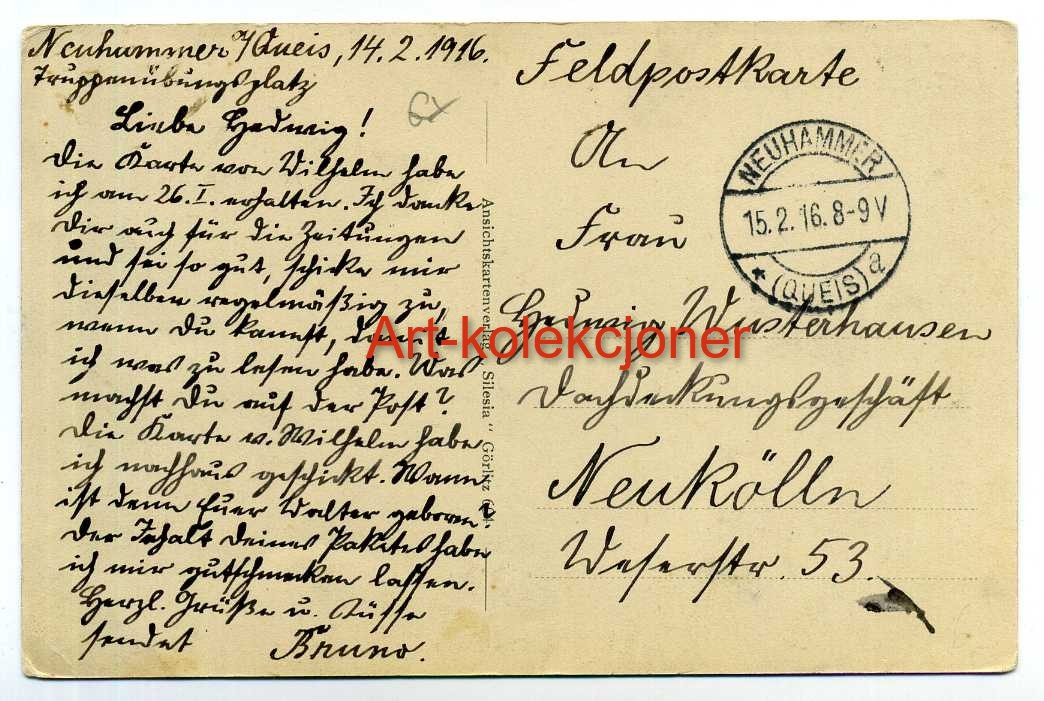 Neuhammer a/Queis, 14.2.1916.
Truppenübungsplatz
Liebe Hedwig!
Die Karte von Wilhelm habe
ich am 26.I. erhalten. Ich danke
Dir auch für die Zeitungen
und sei so gut, schicke mir
dieselben regelmäßig zu,
wenn Du kannst, damit
ich was zu lesen habe. Was
machst Du auf der Post?
Die Karte v. Wilhelm habe
ich nachhaus geschickt. Wann
ist denn Euer Walter geboren?
Der Inhalt Deines Paketes habe
ich mir gutschmecken lassen.
Herzl. Grüße u. Küsse
sendet Bruno.
Ansichtskartenverlag „Silesia“ Görlitz
Feldpostkarte
An
Frau
Hedwig Wusterhausen
Dachdeckungsgeschäft
Neukölln
Weserstr. 53.
NEUHAMMER
15.2.16.8-9V
* (QUEIS) a
Art-kolekcjoner